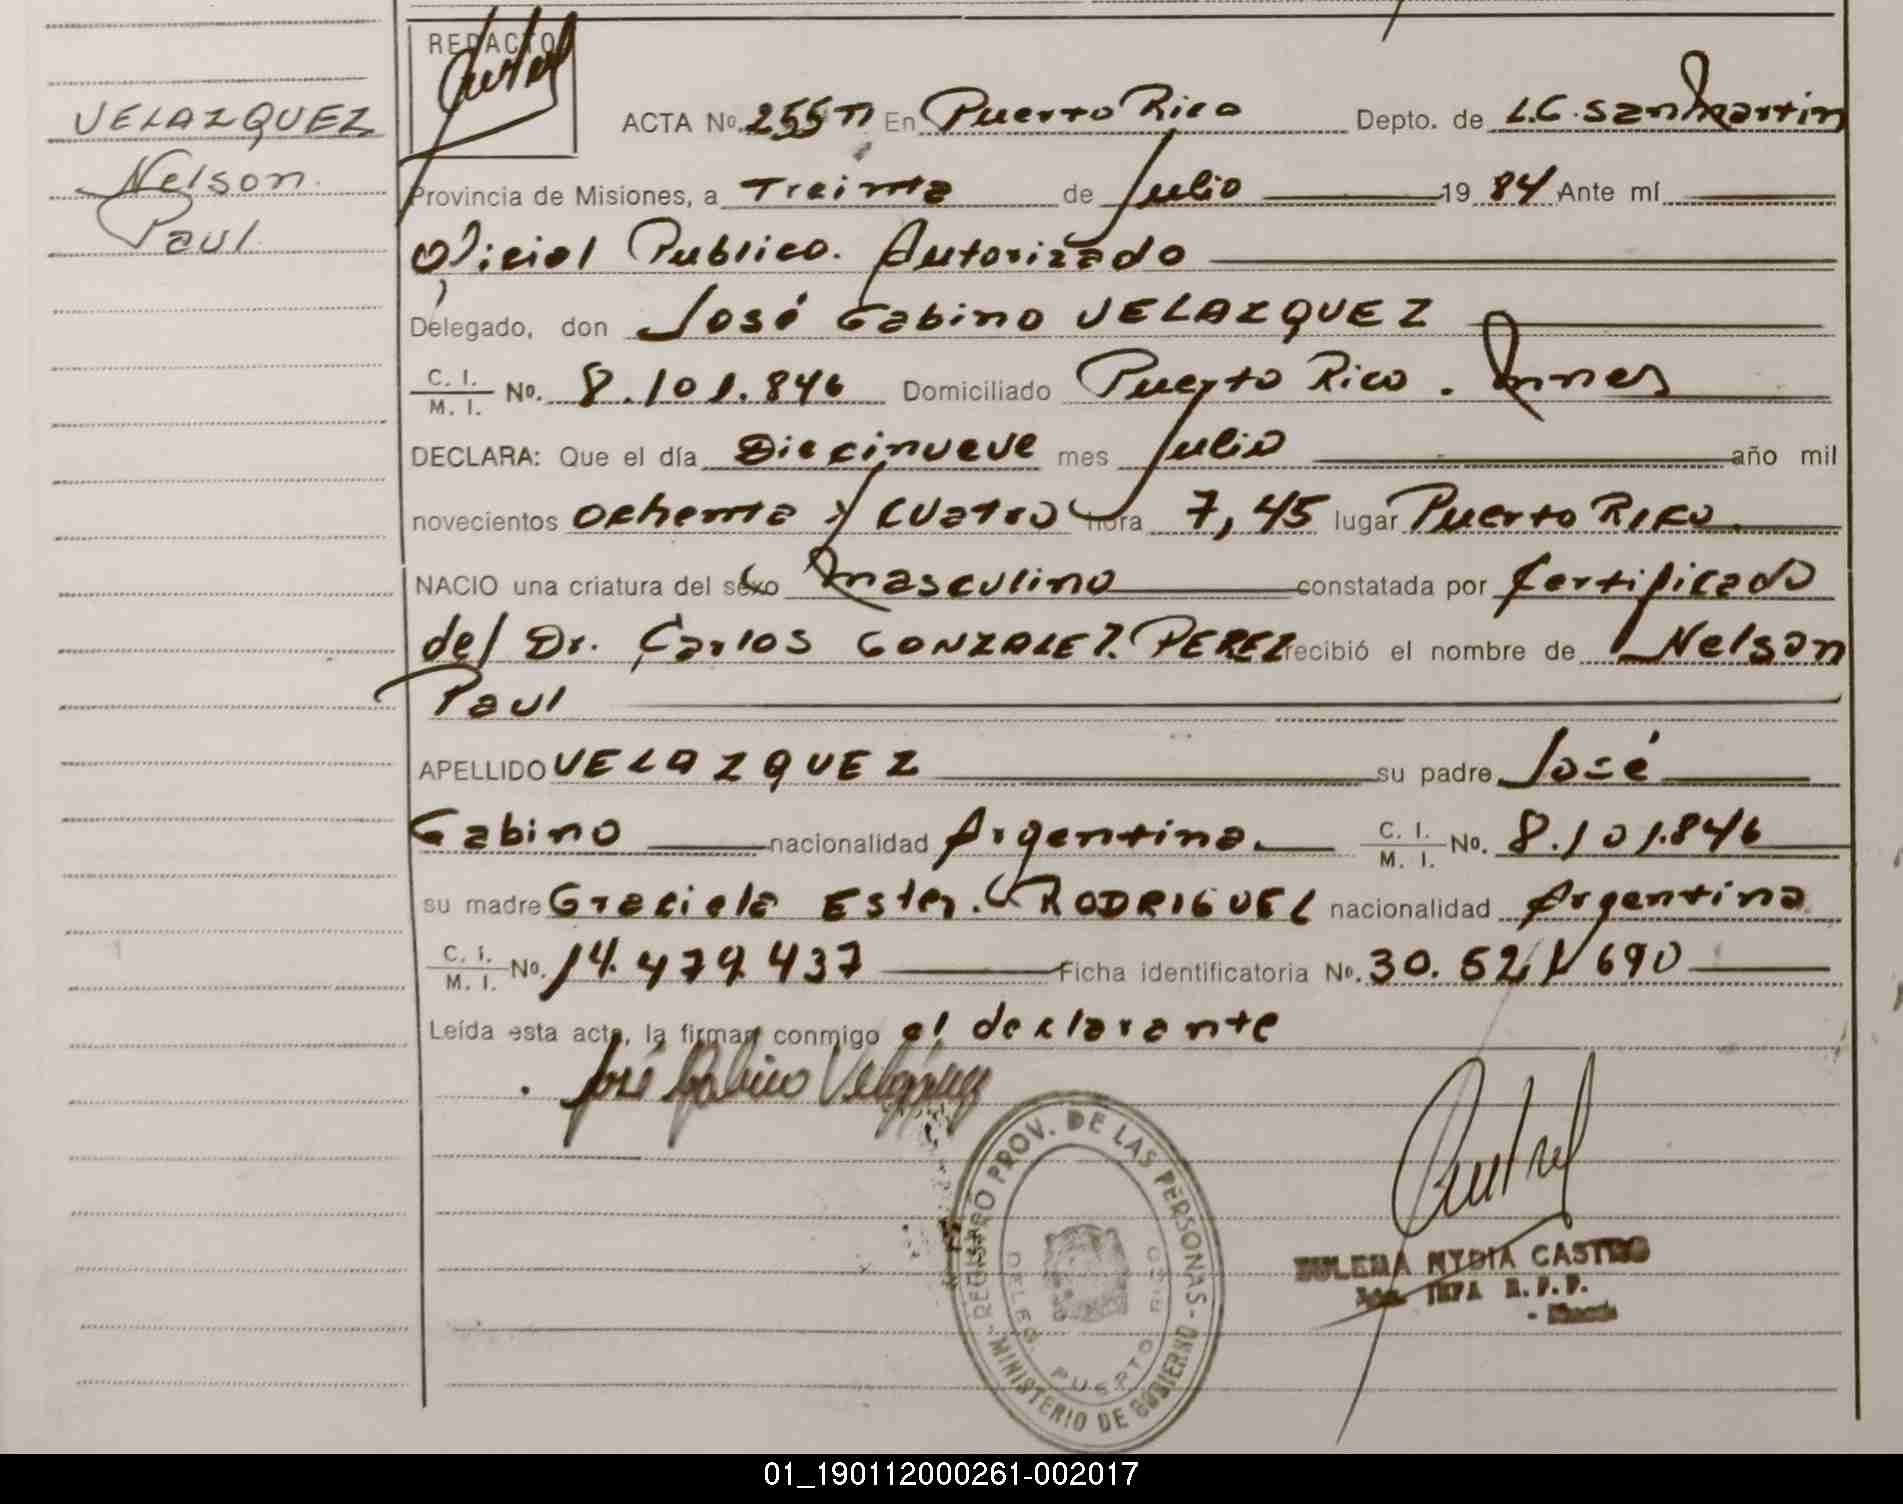 REDACTO
VELAZQUEZ
Nelson
Paul
ACTA No. 255 Tl En Puerto Rico Depto. de L.G. San Martin
Provincia de Misiones, a Treinta de Julio 1984 Ante mí
Oficial Publico. Autorizado
Delegado, don José Gabino VELAZQUEZ
C. I. / M. I. No. 8.101.846 Domiciliado Puerto Rico. Mnes
DECLARA: Que el día Diecinueve mes Julio año mil
novecientos ochenta y cuatro hora 7,45 lugar Puerto Rico.
NACIO una criatura del sexo masculino constatada por Certificado
del Dr. Carlos GONZALEZ. PEREZ recibió el nombre de Nelson
Paul
APELLIDO VELAZQUEZ su padre José
Gabino nacionalidad Argentina. C. I. / M. I. No. 8.101.846
su madre Graciela Ester. RODRIGUEZ nacionalidad Argentina
C. I. / M. I. No. 14.479.437 Ficha identificatoria No. 30.521.690
Leída esta acta, la firman conmigo el declarante
José Gabino Velázquez
REGISTRO PROV. DE LAS PERSONAS - MINISTERIO DE GOBIERNO
DELEG. PUERTO RICO
NYDIA CASTRO
01_190112000261-002017